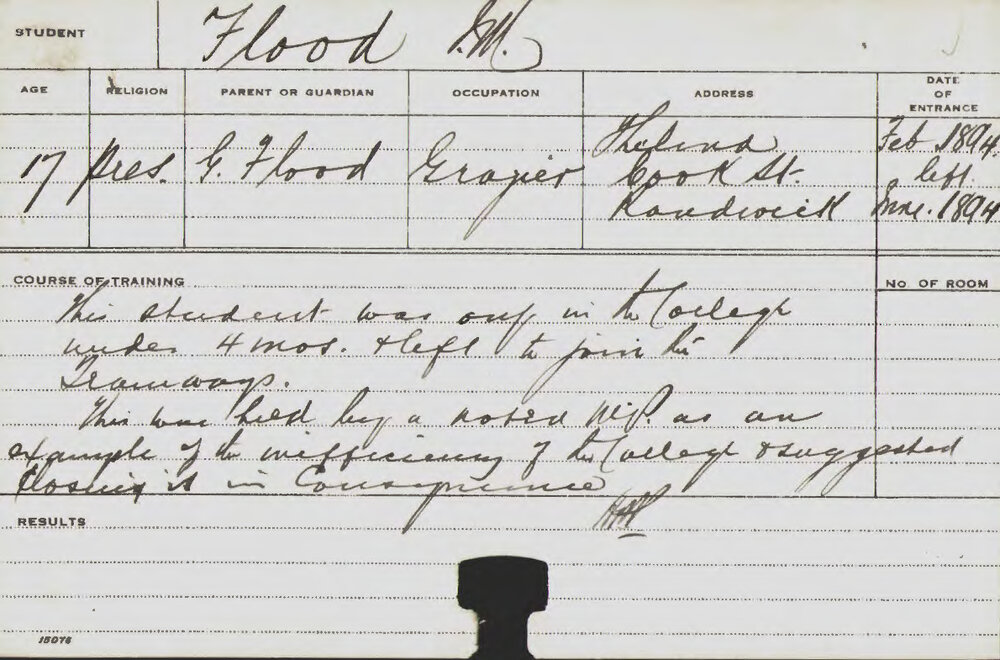 STUDENT
Flood
AGE
RELIGION
PARENT OR GUARDIAN
OCCUPATION
ADDRESS
DATE
OF
ENTRANCE
17
Pres.
G. Flood
Grazier
Cook St.
Randwick
Feb. 1894
left
June. 1894
COURSE OF TRAINING
No OF ROOM
This student was only in the College
under 4 mos. & left to join the
Tramways.
This was held by a noted M.P. as an
example of the inefficiency of the College & suggested
closing it in Consequence
RESULTS
15076